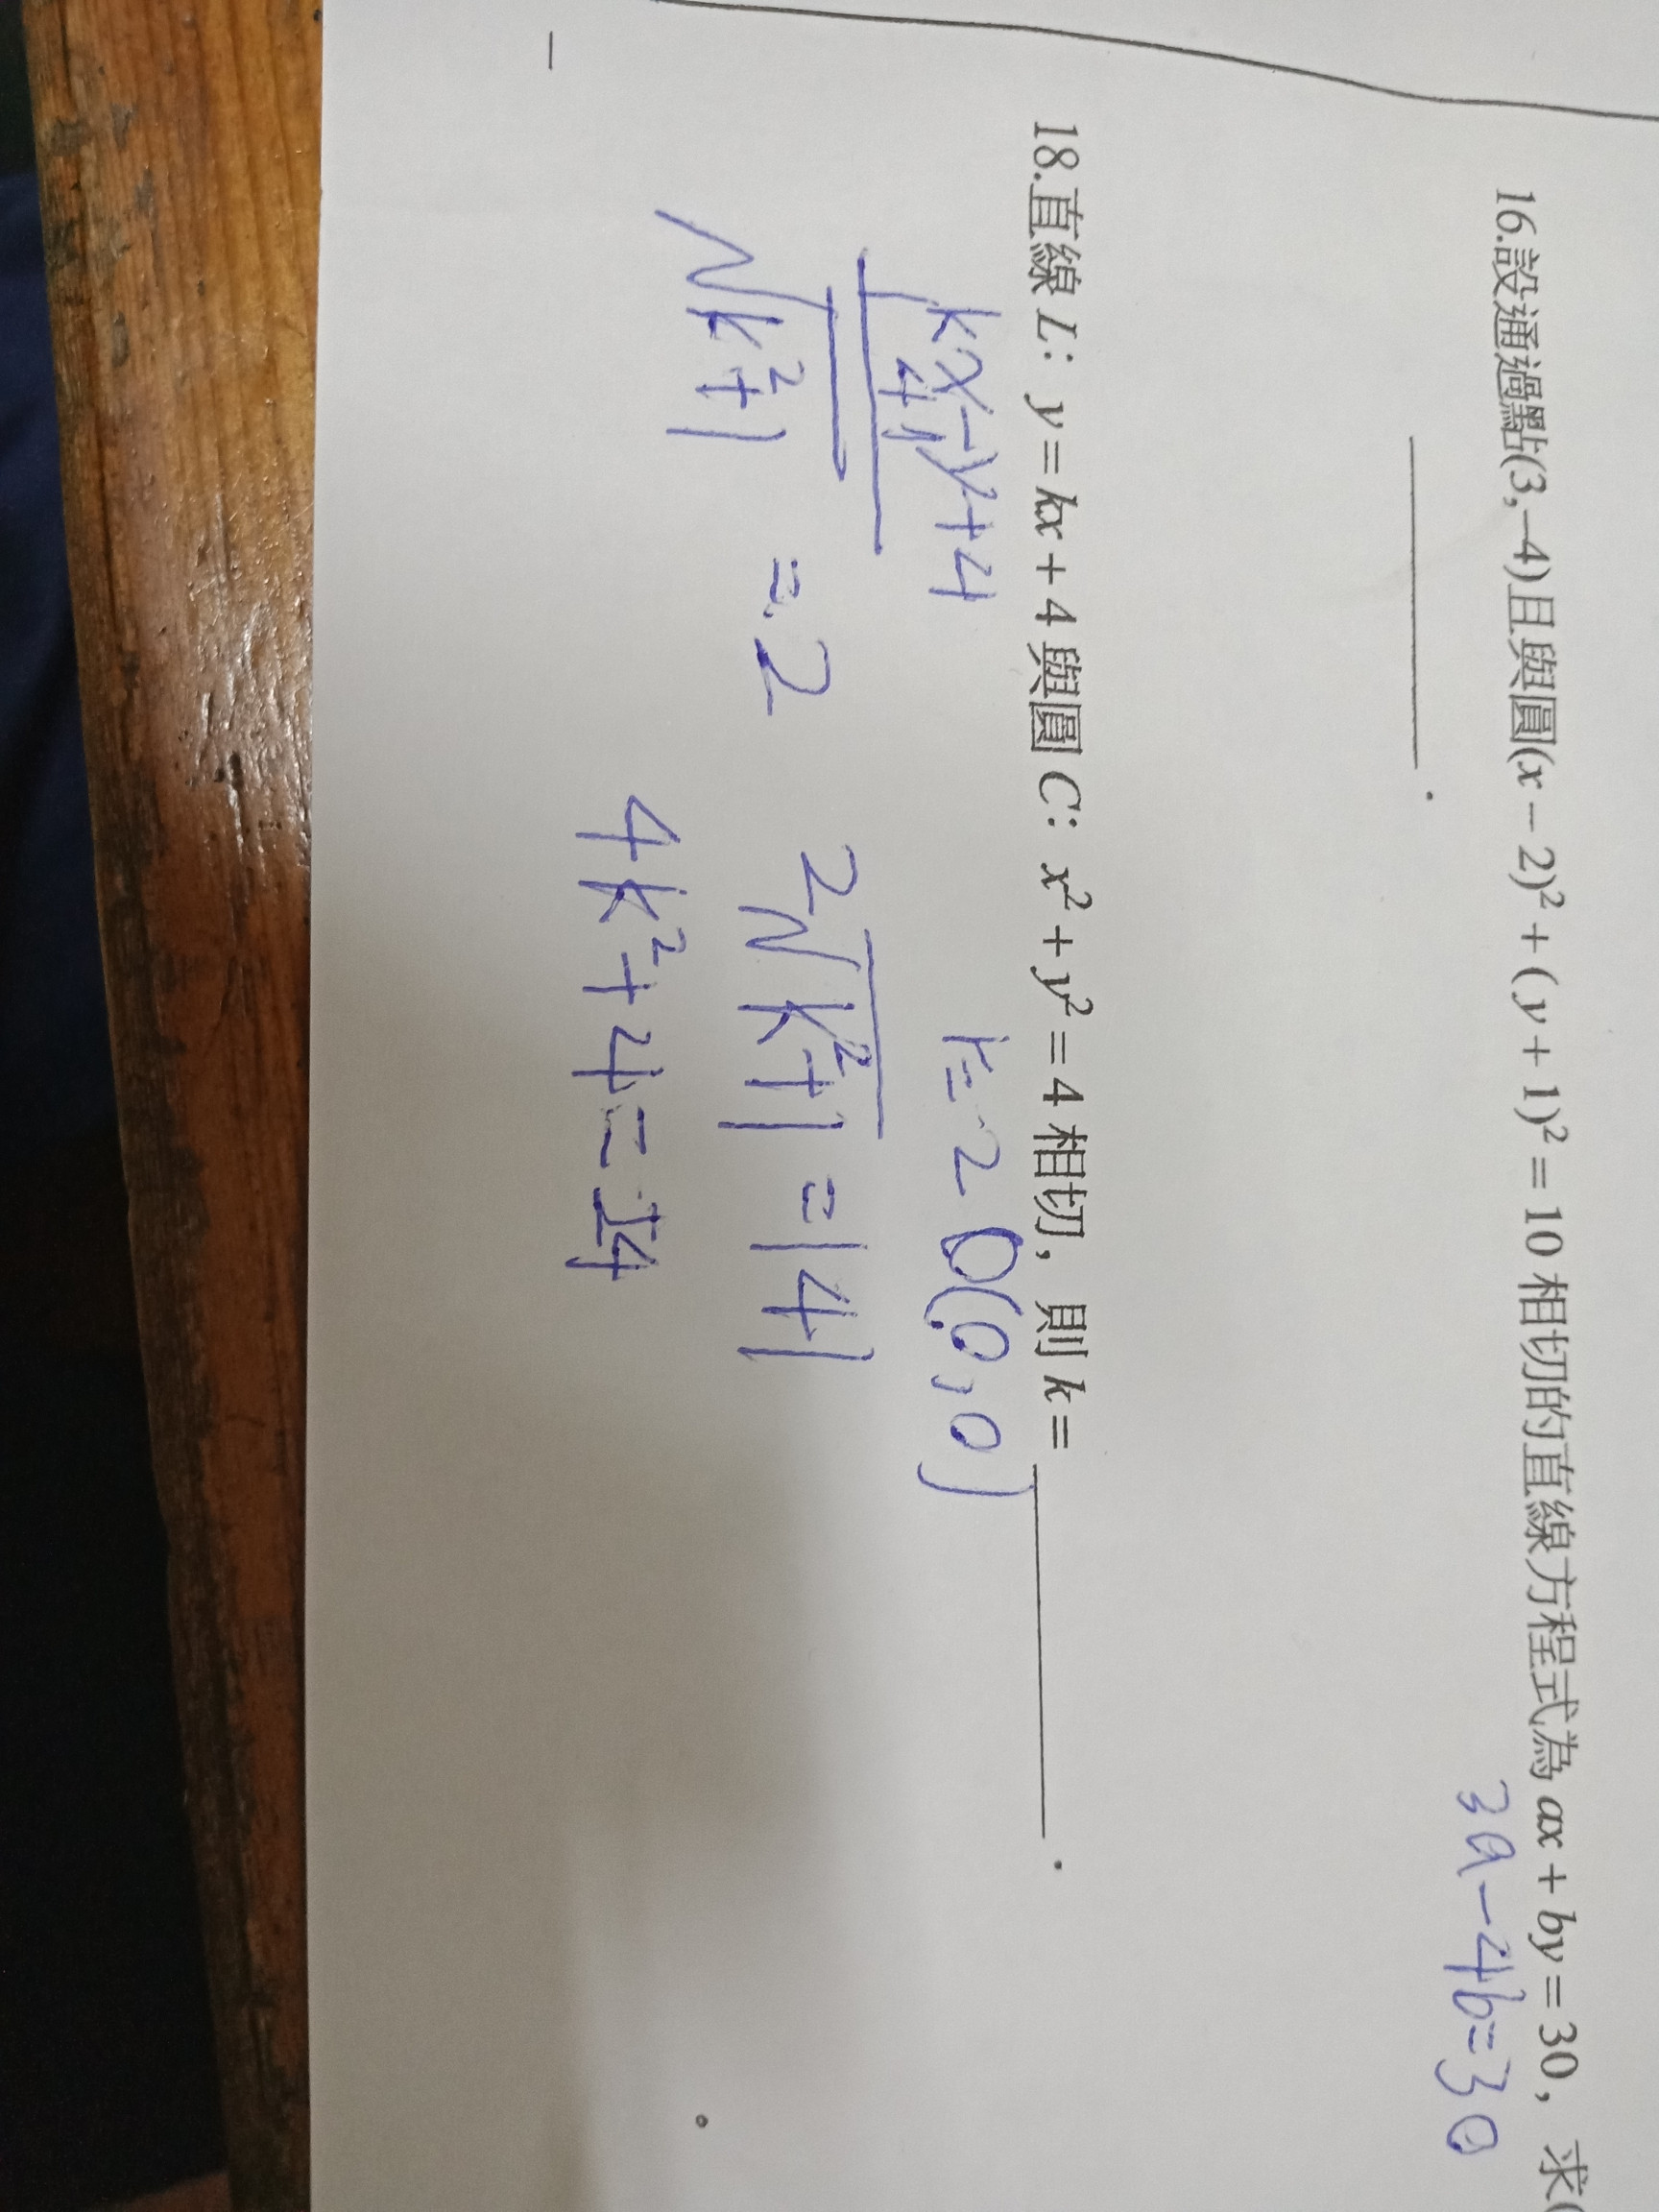 16.設通過點(3,–4)且與圓(x – 2)² + (y + 1)² = 10 相切的直線方程式為 ax + by = 30, 求(
3a-4b=30
______.
18.直線 L: y = kx + 4 與圓 C: x² + y² = 4 相切, 則 k = ______.
kx-y+4 r=2 O(0,0)
|4|
√k²+1 = 2 2√k²+1 = |4|
4k²+4=